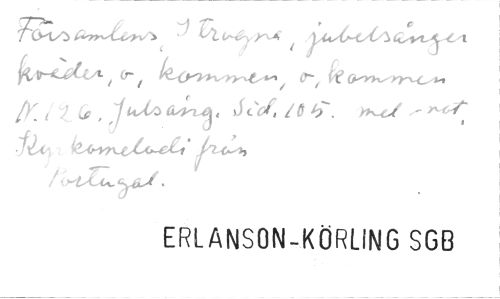 Församlens, I trogna, jubelsånger
kväder, o, kommen, o, kommen
N. 126. Julsång. Sid. 105. mel-not,
Kyrkomelodi från
Portugal.
ERLANSON-KÖRLING SGB